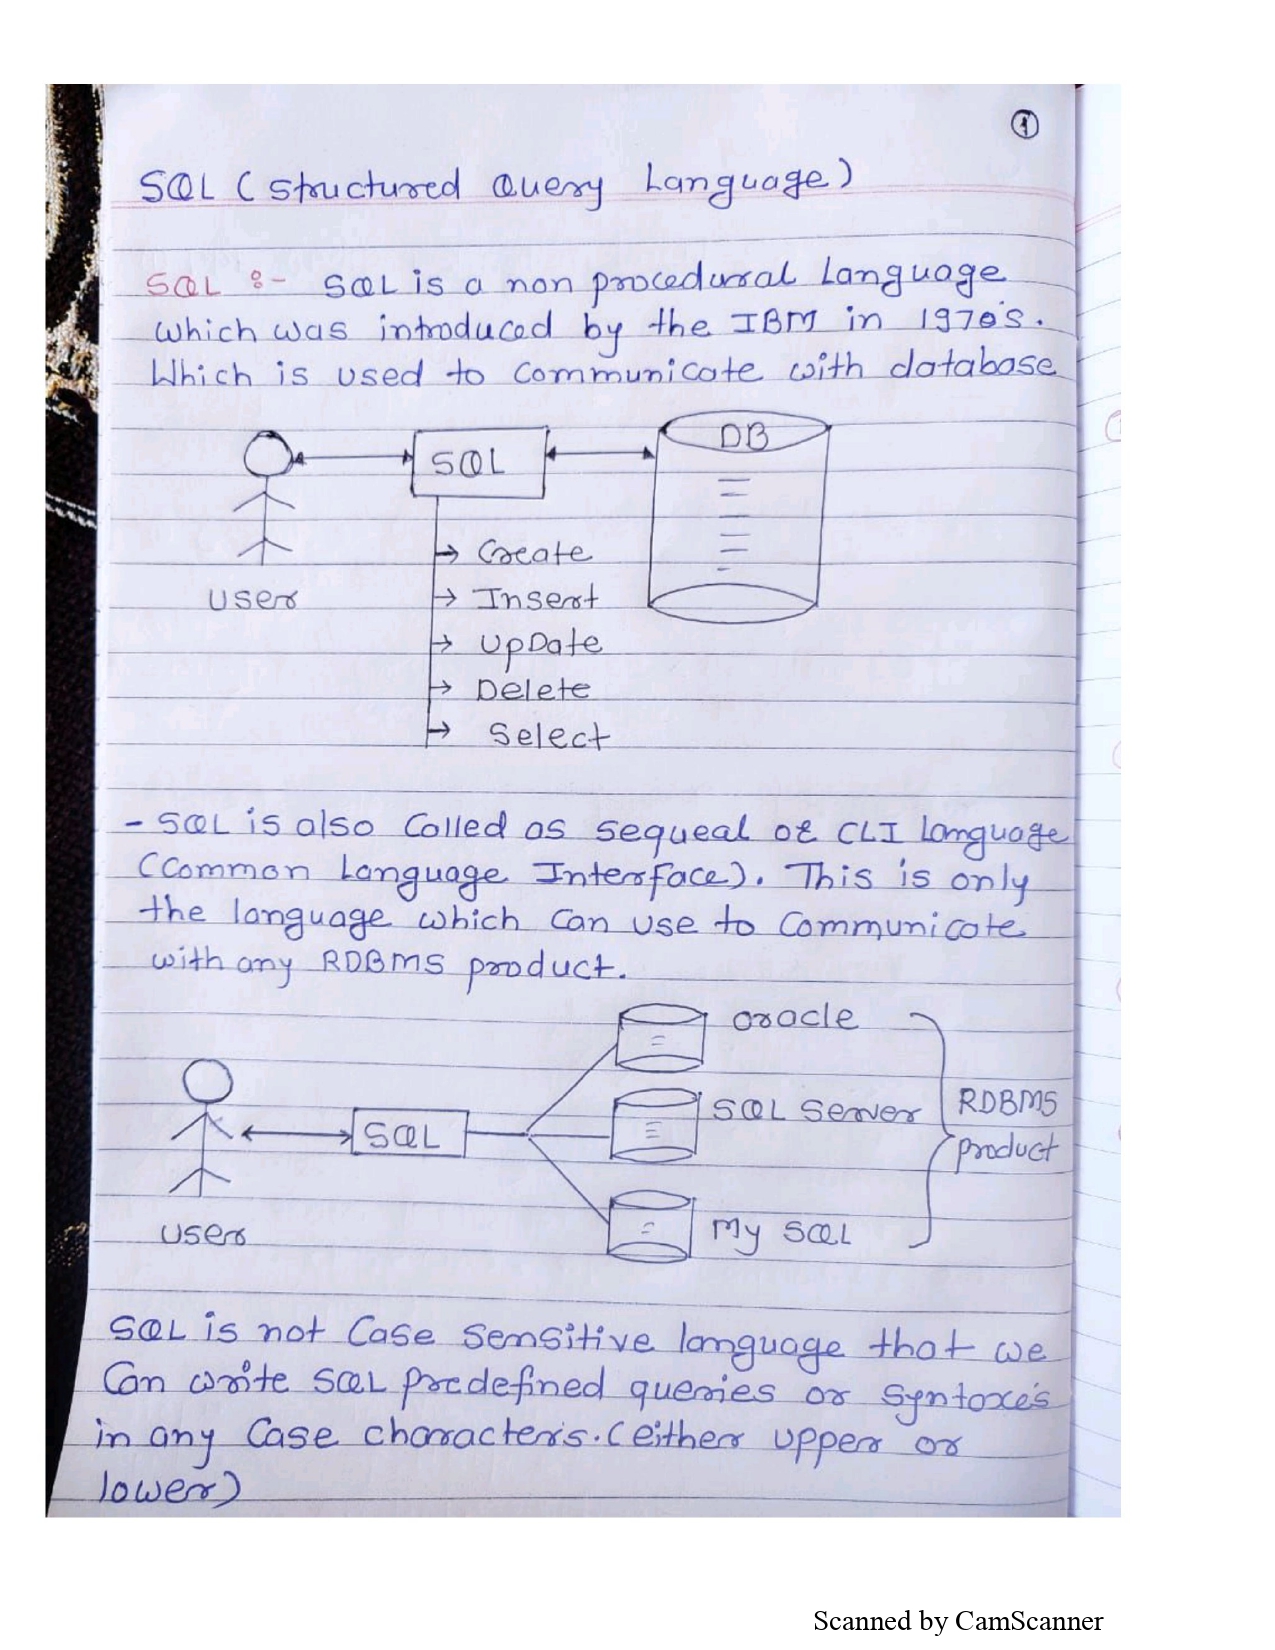 ①
SQL (Structured Query Language)
SQL :- SQL is a non procedural Language
which was introduced by the IBM in 1970's.
Which is used to communicate with database
SQL
DB
Create
User
Insert
UpDate
Delete
Select
- SQL is also Called as sequeal or CLI language
(Common Language Interface). This is only
the language which Can use to Communicate
with any RDBMS product.
Oracle
SQL Server
RDBMS
SQL
product
User
My SQL
SQL is not Case Sensitive language that we
Can write SQL predefined queries or Syntaxe's
in any Case characters. (either upper or
lower)
Scanned by CamScanner